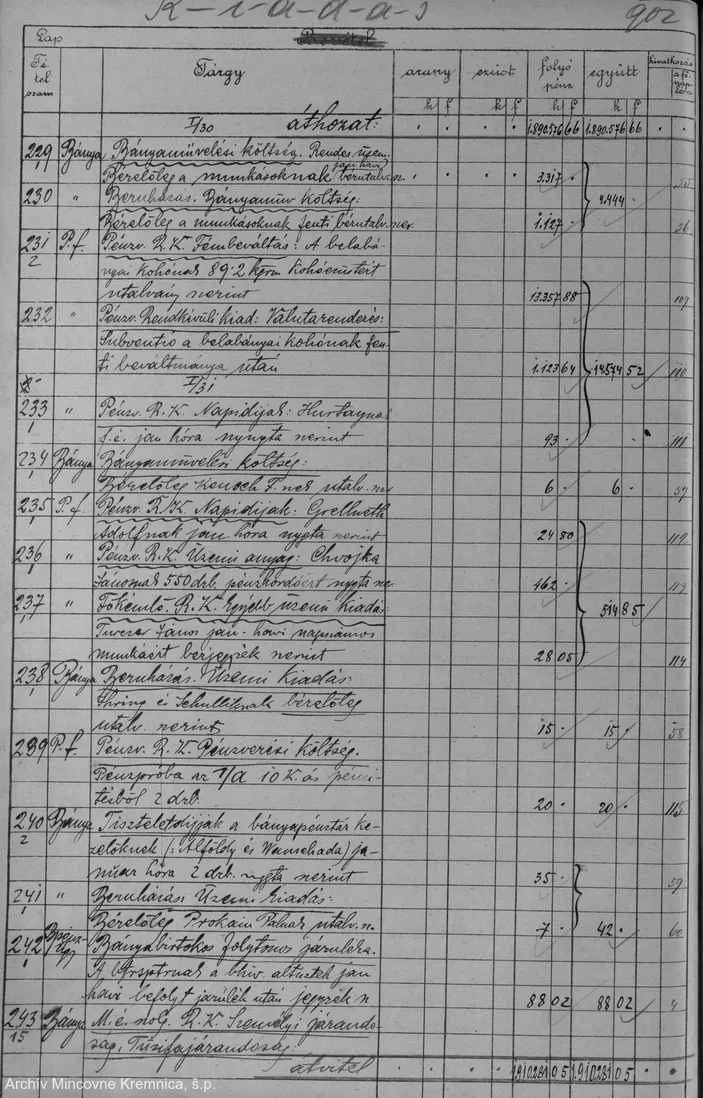 K-i-a-d-á-s
902
Lap
Bevétel
Té-
tel
szám
Tárgy
arany
ezüst
folyó
pénz
együtt
hivatkozás
a fő-
nap-
lóra
k f k f k f k f
I/30 áthozat: 1.890.576 66 1.890.576 66
229 Bánya Bányaművelési költség. Rendes üzem.
jan havi
Bérelőleg a munkásoknak bérutalv. sz. 3.317 55
230 " Beruházás. Bányaműv költség: 4.444
Bérelőleg a munkásoknak fenti bérutalv. szer. 1.127 56
231 P.f. Pénzv. R.K. Fémbeváltás: A belabá-
2
nyai Kohónak 89.2 kgrm Kohóezüstért
utalvány szerint 13.357 88 109
232 " Pénzv. Rendkívüli kiad: Valutarendezés:
Subventió a belabányai kohónak fen-
ti beváltmánya után 1.123 64 14574 52 110
I/31
233 " Pénzv. R.K. Napidíjak:
s.é. jan hóra nyugta szerint 93 111
234 Bánya Bányaművelési költség:
Bérelőleg F. nek utalv. szer 6 6 57
235 P.f. Pénzv. R.K. Napidíjak:
Adolfnak jan. hóra nyugta szerint 24 80 112
236 " Pénzv. R.K. Üzemi anyag: Chvojka
Jánosnak 550 drb. pénzhordóért nyugta sz. 462 113
237 " Főkémlő. R.K. Egyéb üzemi Kiadás: 514 85
János jan. havi napszámos
munkáért bérjegyzék szerint 28 05 114
238 Bánya Beruházás. Üzemi Kiadás:
és bérelőleg
utalv. szerint 15 15 58
239 P.f. Pénzv. R.K. Pénzverési költség.
Pénzpróba az I/A 10 K.ás pénz-
ből 2 drb. 20 20 115
240 Bánya Tiszteletdíjak a bányapénztár ke-
2
zelőknek (: Alföldy és Wenschada) ja-
nuár hóra 2 drb. nyugta szerint 35 59
241 " Beruházás Üzemi kiadás:
Bérelőleg Prokain Pálnak utalv. sz. 7 42 60
242 Bányabirtokos folytonos járuléka.
A a bhiv. altisztek jan
havi befolyt járulék után jegyzék sz 88 02 88 02 4
243 Bánya M. é. R.K. Személyi járandó-
15
ság, Tűzifajárandóság.
átvitel 1.910281 05 1.910281 05
Archív Mincovne Kremnica, š.p.